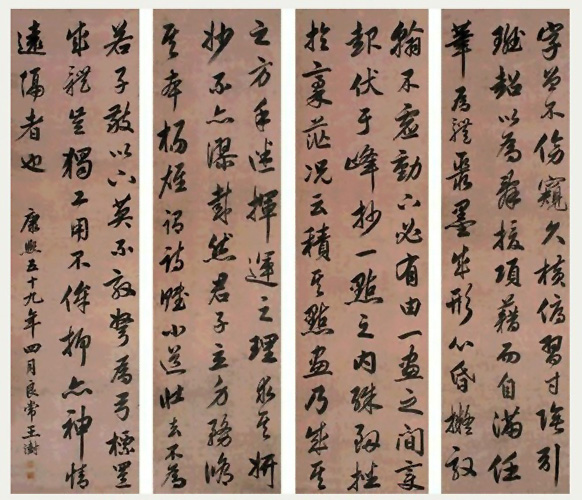 字曾不傍窺尺櫝俯習寸陰引
班超以為辭援項籍而自滿任
筆為體聚墨成形心昏擬效
翰不虛動下必有由一畫之間變
起伏于峰杪一點之內殊衄挫
於豪芒況云積其點畫乃成其
之方手迷揮運之理求其妍
妙不亦謬哉然君子立身務修
其本楊雄謂詩賦小道壯夫不為
若子敬以下莫不鼓努為力標置
成體豈獨工用不侔抑亦神情
遠隔者也
康熙五十九年四月良常王澍